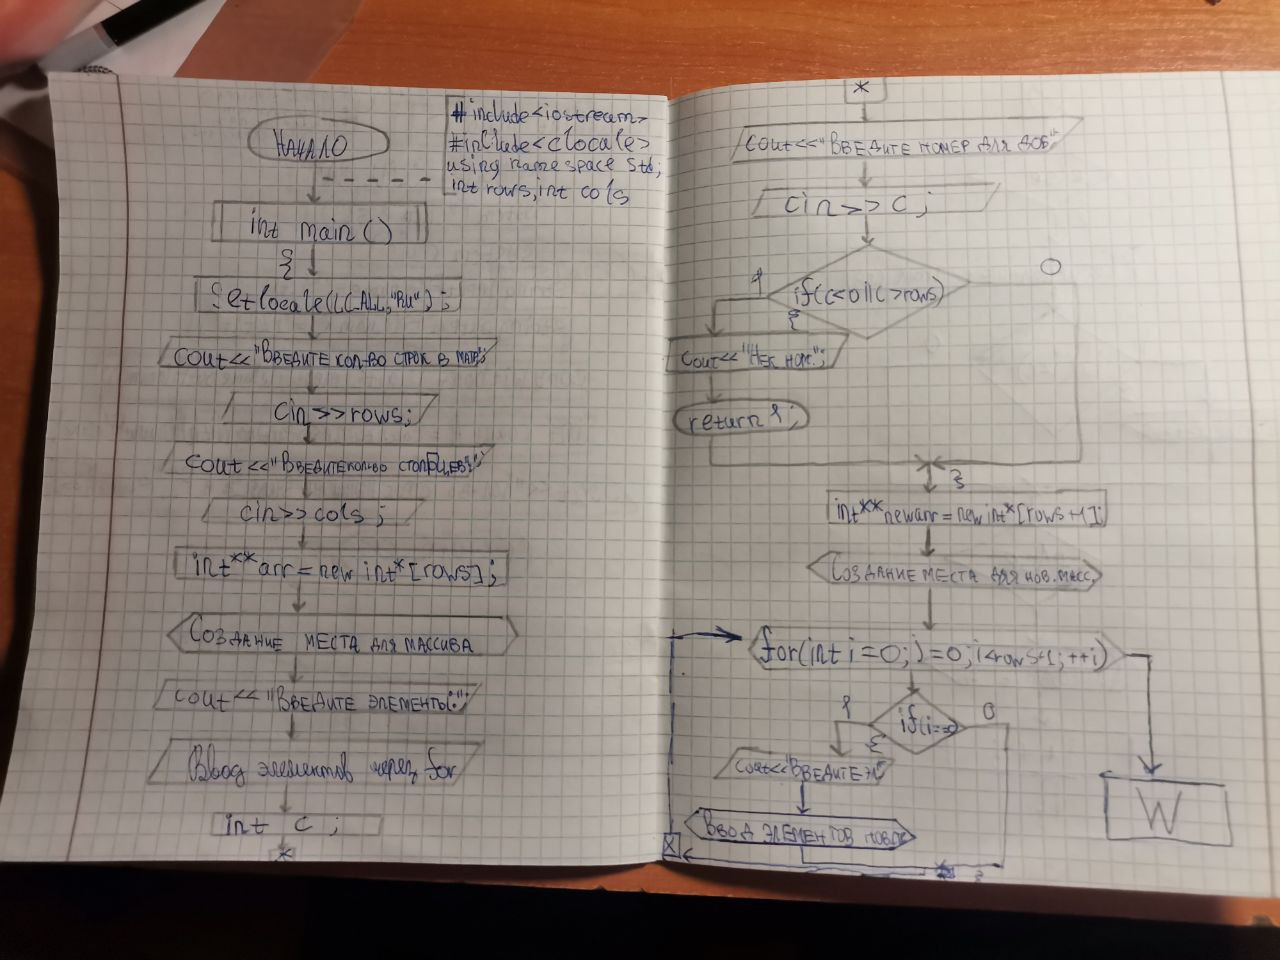 НАЧАЛО
#include<iostream>
#include<clocale>
using namespace std;
int rows, int cols
int main()
{
Setlocale(LC_ALL,"Ru");
Cout<<"ВВЕДИТЕ КОЛ-ВО СТРОК В МАТР";
Cin>>rows;
Cout<<"ВВЕДИТЕ КОЛ-ВО СТОЛБЦЕВ";
Cin>>cols;
int**arr=new int*[rows];
СОЗДАНИЕ МЕСТА ДЛЯ МАССИВА
Cout<<"ВВЕДИТЕ ЭЛЕМЕНТЫ:";
Ввод элементов через for
int c;
*
*
Cout<<"ВВЕДИТЕ НОМЕР ДЛЯ ДОБ"
Cin>>c;
if(c<0||c>rows)
1
0
{
Cout<<"НЕК НОМ.";
return 1;
}
int**newarr=new int*[rows+1];
СОЗДАНИЕ МЕСТА ДЛЯ НОВ. МАСС.
for(int i=0;j=0;i<rows+1;++i)
if(i==
1
0
{
Cout<<"ВВЕДИТЕ
W
ВВОД ЭЛЕМЕНТОВ
X
}